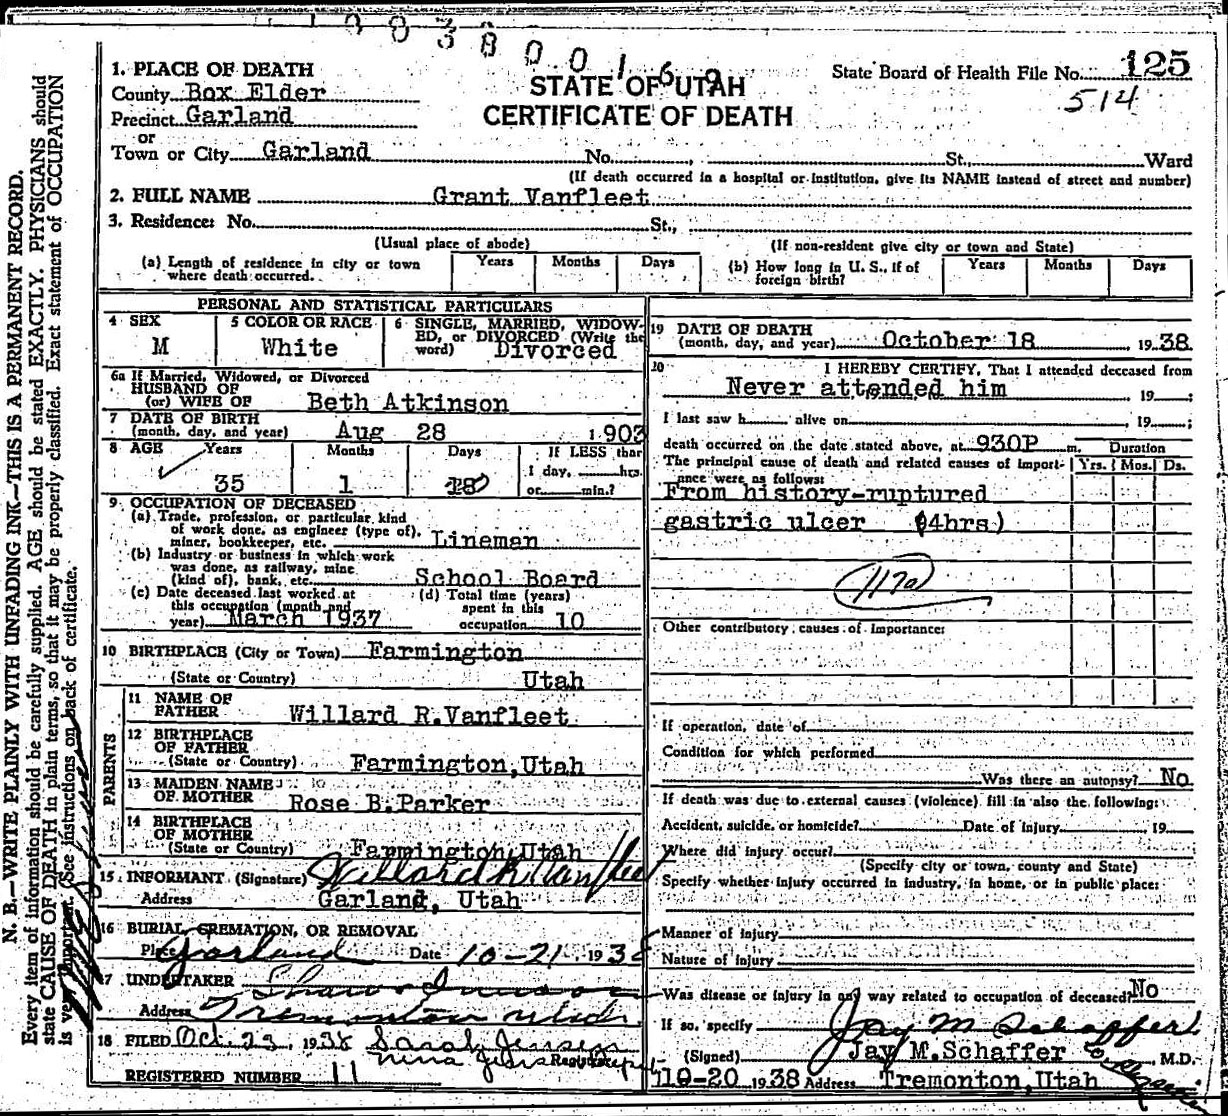 193800169
STATE OF UTAH
CERTIFICATE OF DEATH
State Board of Health File No. 125
514
1. PLACE OF DEATH
County Box Elder
Precinct Garland
or
Town or City Garland No. , St. Ward
(If death occurred in a hospital or institution, give its NAME instead of street and number)
2. FULL NAME Grant Vanfleet
3. Residence: No. St.,
(Usual place of abode) (If non-resident give city or town and State)
(a) Length of residence in city or town where death occurred. Years Months Days (b) How long in U. S., if of foreign birth? Years Months Days
PERSONAL AND STATISTICAL PARTICULARS
4 SEX
M
5 COLOR OR RACE
White
6 SINGLE, MARRIED, WIDOW-
ED, or DIVORCED (Write the
word) Divorced
6a If Married, Widowed, or Divorced
HUSBAND OF
(or) WIFE OF Beth Atkinson
7 DATE OF BIRTH
(month, day, and year) Aug 28 1903
8 AGE Years Months Days If LESS than
1 day, hrs.
35 1 or min.?
9 OCCUPATION OF DECEASED
(a) Trade, profession, or particular kind
of work done, as engineer (type of),
miner, bookkeeper, etc. Lineman
(b) Industry or business in which work
was done, as railway, mine
(kind of), bank, etc. School Board
(c) Date deceased last worked at
this occupation (month and
year) March 1937
(d) Total time (years)
spent in this
occupation 10
10 BIRTHPLACE (City or Town) Farmington
(State or Country) Utah
PARENTS
11 NAME OF
FATHER Willard R.Vanfleet
12 BIRTHPLACE
OF FATHER
(State or Country) Farmington,Utah
13 MAIDEN NAME
OF MOTHER Rose B.Parker
14 BIRTHPLACE
OF MOTHER
(State or Country) Farmington,Utah
15. INFORMANT (Signature) Willard R Vanfleet
Address Garland, Utah
16 BURIAL, CREMATION, OR REMOVAL
Place Garland Date 10-21 1938
17 UNDERTAKER Shaw
Address Tremonton Utah
18 FILED Oct. 23, 1938 Sarah Jensen
Nina Registrar
REGISTERED NUMBER 11
19 DATE OF DEATH
(month, day, and year) October 18 1938
20 I HEREBY CERTIFY, That I attended deceased from
Never attended him 19 ;
I last saw h alive on , 19 ;
death occurred on the date stated above, at 930P m. Duration
The principal cause of death and related causes of import-
ance were as follows: Yrs. Mos. Ds.
From history-ruptured
gastric ulcer (4hrs)
117a
Other contributory causes of importance:
If operation, date of
Condition for which performed
Was there an autopsy? No
If death was due to external causes (violence) fill in also the following:
Accident, suicide, or homicide? Date of injury 19
Where did injury occur?
(Specify city or town, county and State)
Specify whether injury occurred in industry, in home, or in public place:
Manner of injury
Nature of injury
Was disease or injury in any way related to occupation of deceased? No
If so, specify Jay M Schaffer
(Signed) Jay M.Schaffer M.D.
10-20 1938 Address Tremonton,Utah
N. B.—WRITE PLAINLY WITH UNFADING INK—THIS IS A PERMANENT RECORD.
Every item of information should be carefully supplied. AGE should be stated EXACTLY. PHYSICIANS should
state CAUSE OF DEATH in plain terms, so that it may be properly classified. Exact statement of OCCUPATION
is very important. (See instructions on back of certificate.